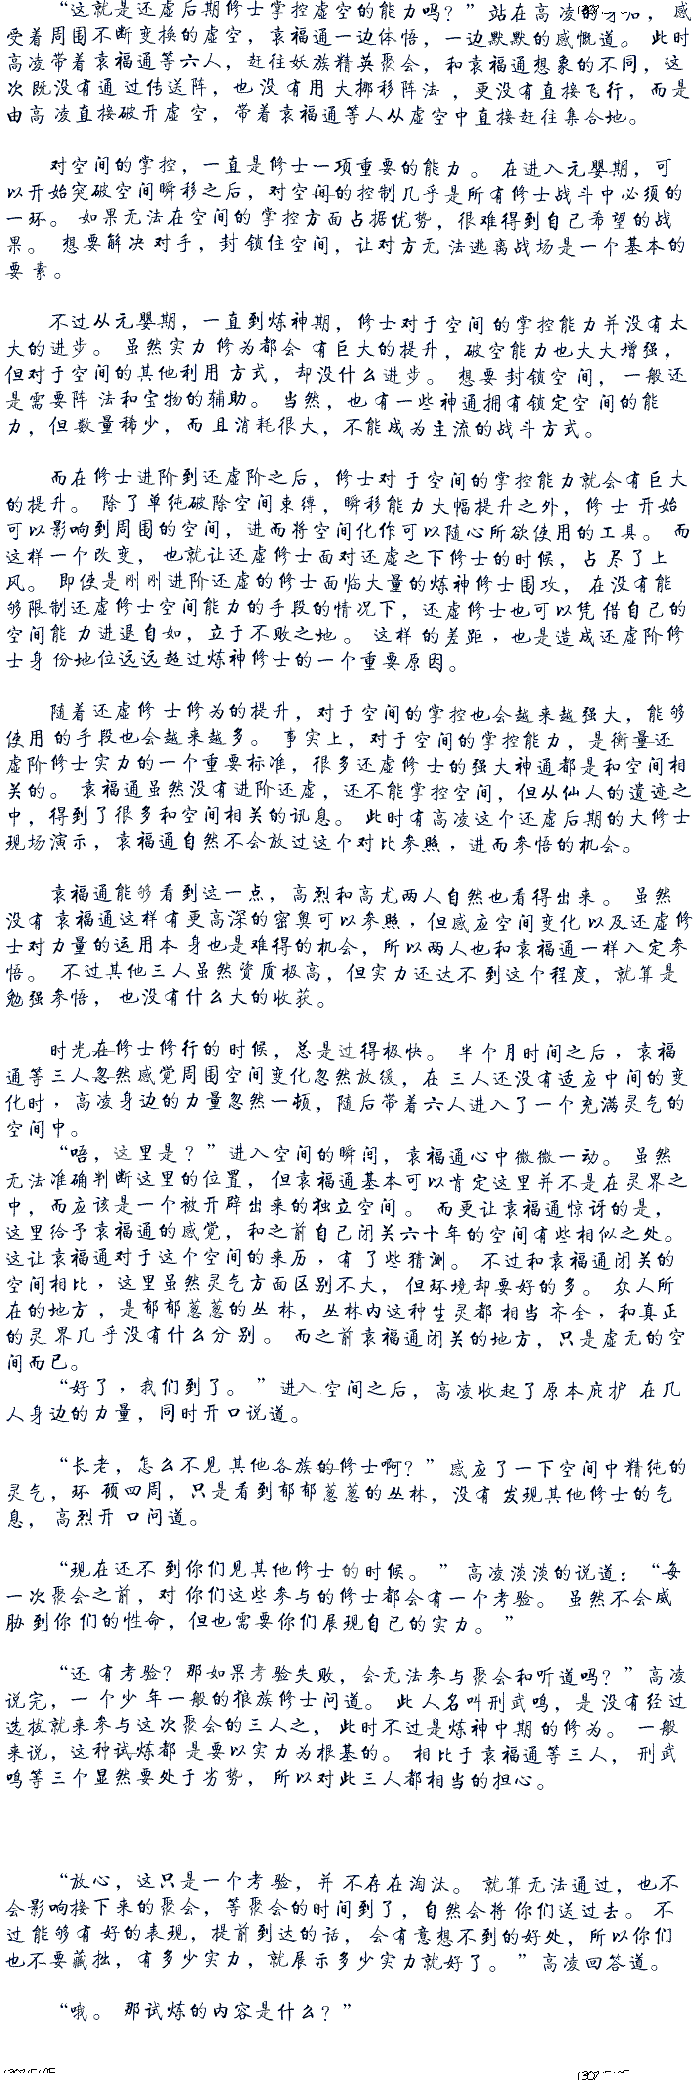 “这就是还虚后期修士掌控虚空的能力吗？”站在高凌的身后，感
受着周围不断变换的虚空，袁福通一边体悟，一边默默的感慨道。 此时
高凌带着袁福通等六人，赶往妖族精英聚会，和袁福通想象的不同，这
次既没有通过传送阵，也没有用大挪移阵法，更没有直接飞行，而是
由高凌直接破开虚空，带着袁福通等人从虚空中直接赶往集合地。
对空间的掌控，一直是修士一项重要的能力。 在进入元婴期，可
以开始突破空间瞬移之后，对空间的控制几乎是所有修士战斗中必须的
一环。 如果无法在空间的掌控方面占据优势，很难得到自己希望的战
果。 想要解决对手，封锁住空间，让对方无法逃离战场是一个基本的
要素。
不过从元婴期，一直到炼神期，修士对于空间的掌控能力并没有太
大的进步。 虽然实力修为都会有巨大的提升，破空能力也大大增强，
但对于空间的其他利用方式，却没什么进步。 想要封锁空间，一般还
是需要阵法和宝物的辅助。 当然，也有一些神通拥有锁定空间的能
力，但数量稀少，而且消耗很大，不能成为主流的战斗方式。
而在修士进阶到还虚阶之后，修士对于空间的掌控能力就会有巨大
的提升。 除了单纯破除空间束缚，瞬移能力大幅提升之外，修士开始
可以影响到周围的空间，进而将空间化作可以随心所欲使用的工具。 而
这样一个改变，也就让还虚修士面对还虚之下修士的时候，占尽了上
风。 即使是刚刚进阶还虚的修士面临大量的炼神修士围攻，在没有能
够限制还虚修士空间能力的手段的情况下，还虚修士也可以凭借自己的
空间能力进退自如，立于不败之地。 这样的差距，也是造成还虚阶修
士身份地位远远超过炼神修士的一个重要原因。
随着还虚修士修为的提升，对于空间的掌控也会越来越强大，能够
使用的手段也会越来越多。 事实上，对于空间的掌控能力，是衡量还
虚阶修士实力的一个重要标准，很多还虚修士的强大神通都是和空间相
关的。 袁福通虽然没有进阶还虚，还不能掌控空间，但从仙人的遗迹之
中，得到了很多和空间相关的讯息。 此时有高凌这个还虚后期的大修士
现场演示，袁福通自然不会放过这个对比参照，进而参悟的机会。
袁福通能够看到这一点，高烈和高尤两人自然也看得出来。 虽然
没有袁福通这样有更高深的密奥可以参照，但感应空间变化以及还虚修
士对力量的运用本身也是难得的机会，所以两人也和袁福通一样入定参
悟。 不过其他三人虽然资质极高，但实力还达不到这个程度，就算是
勉强参悟，也没有什么大的收获。
时光在修士修行的时候，总是过得极快。 半个月时间之后，袁福
通等三人忽然感觉周围空间变化忽然放缓，在三人还没有适应中间的变
化时，高凌身边的力量忽然一顿，随后带着六人进入了一个充满灵气的
空间中。
“唔，这里是？”进入空间的瞬间，袁福通心中微微一动。 虽然
无法准确判断这里的位置，但袁福通基本可以肯定这里并不是在灵界之
中，而应该是一个被开辟出来的独立空间。 而更让袁福通惊讶的是，
这里给予袁福通的感觉，和之前自己闭关六十年的空间有些相似之处。
这让袁福通对于这个空间的来历，有了些猜测。 不过和袁福通闭关的
空间相比，这里虽然灵气方面区别不大，但环境却要好的多。 众人所
在的地方，是郁郁葱葱的丛林，丛林内这种生灵都相当齐全，和真正
的灵界几乎没有什么分别。 而之前袁福通闭关的地方，只是虚无的空
间而已。
“好了，我们到了。 ”进入空间之后，高凌收起了原本庇护在几
人身边的力量，同时开口说道。
“长老，怎么不见其他各族的修士啊？”感应了一下空间中精纯的
灵气，环顾四周，只是看到郁郁葱葱的丛林，没有发现其他修士的气
息，高烈开口问道。
“现在还不到你们见其他修士的时候。 ”高凌淡淡的说道：“每
一次聚会之前，对你们这些参与的修士都会有一个考验。 虽然不会威
胁到你们的性命，但也需要你们展现自己的实力。”
“还有考验？那如果考验失败，会无法参与聚会和听道吗？”高凌
说完，一个少年一般的狼族修士问道。 此人名叫刑武鸣，是没有经过
选拔就来参与这次聚会的三人之，此时不过是炼神中期的修为。 一般
来说，这种试炼都是要以实力为根基的。 相比于袁福通等三人，刑武
鸣等三个显然要处于劣势，所以对此三人都相当的担心。
“放心，这只是一个考验，并不存在淘汰。 就算无法通过，也不
会影响接下来的聚会，等聚会的时间到了，自然会将你们送过去。 不
过能够有好的表现，提前到达的话，会有意想不到的好处，所以你们
也不要藏拙，有多少实力，就展示多少实力就好了。 ”高凌回答道。
“哦。 那试炼的内容是什么？”